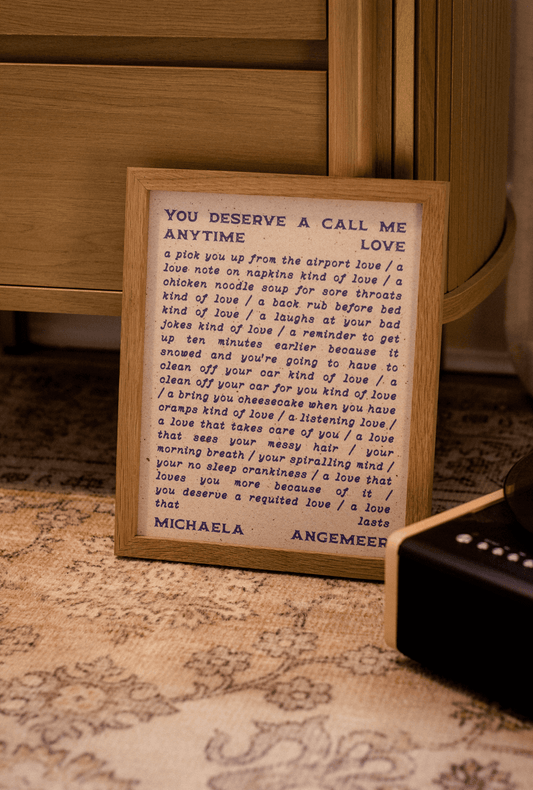 YOU DESERVE A CALL ME
ANYTIME LOVE
a pick you up from the airport love / a
love note on napkins kind of love / a
chicken noodle soup for sore throats
kind of love / a back rub before bed
kind of love / a laughs at your bad
jokes kind of love / a reminder to get
up ten minutes earlier because it
snowed and you're going to have to
clean off your car kind of love / a
clean off your car for you kind of love
/ a bring you cheesecake when you have
cramps kind of love / a listening love /
a love that takes care of you / a love
that sees your messy hair / your
morning breath / your spiralling mind /
your no sleep crankiness / a love that
loves you more because of it /
you deserve a requited love / a love
that lasts
MICHAELA ANGEMEER